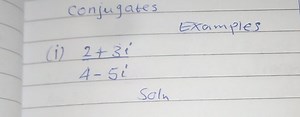 conjugates
Examples
(i) 2+3i
4-5i
Soln